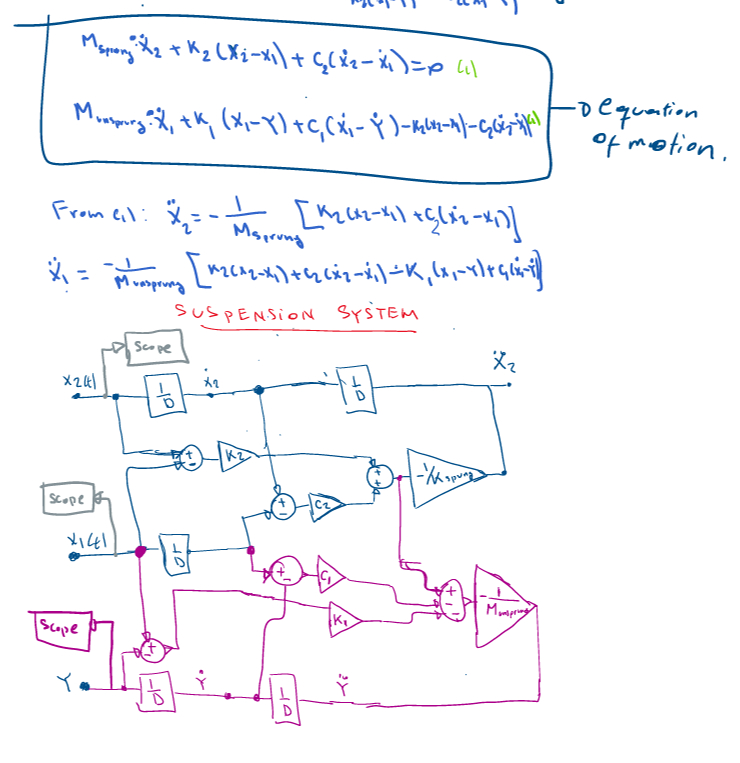 M_sprung·Ẍ₂ + K₂(X₂-x₁) + C₂(ẋ₂-ẋ₁)=0 (1)
M_unsprung·Ẍ₁ + K₁ (X₁-Y) + C₁(ẋ₁-Ẏ) - K₂(x₂-x₁) - C₂(ẋ₂-ẋ₁)
equation
of motion.
From (1): Ẍ₂ = - 1/M_sprung [K₂(x₂-x₁) + C₂(ẋ₂-ẋ₁)]
Ẍ₁ = -1/M_unsprung [K₂(x₂-x₁)+C₂(ẋ₂-ẋ₁) - K₁(x₁-Y)+C₁(ẋ₁-Ẏ)]
SUSPENSION SYSTEM
Scope
X2(t) 1/D ẋ₂ 1/D Ẍ₂
+ - K₂
+ + -1/Ksprung
Scope
+ - C₂
X1(t) 1/D
+ - C₁
+ - - -1/Munsprung
Scope
K₁
+ -
Y 1/D Ẏ 1/D Ÿ